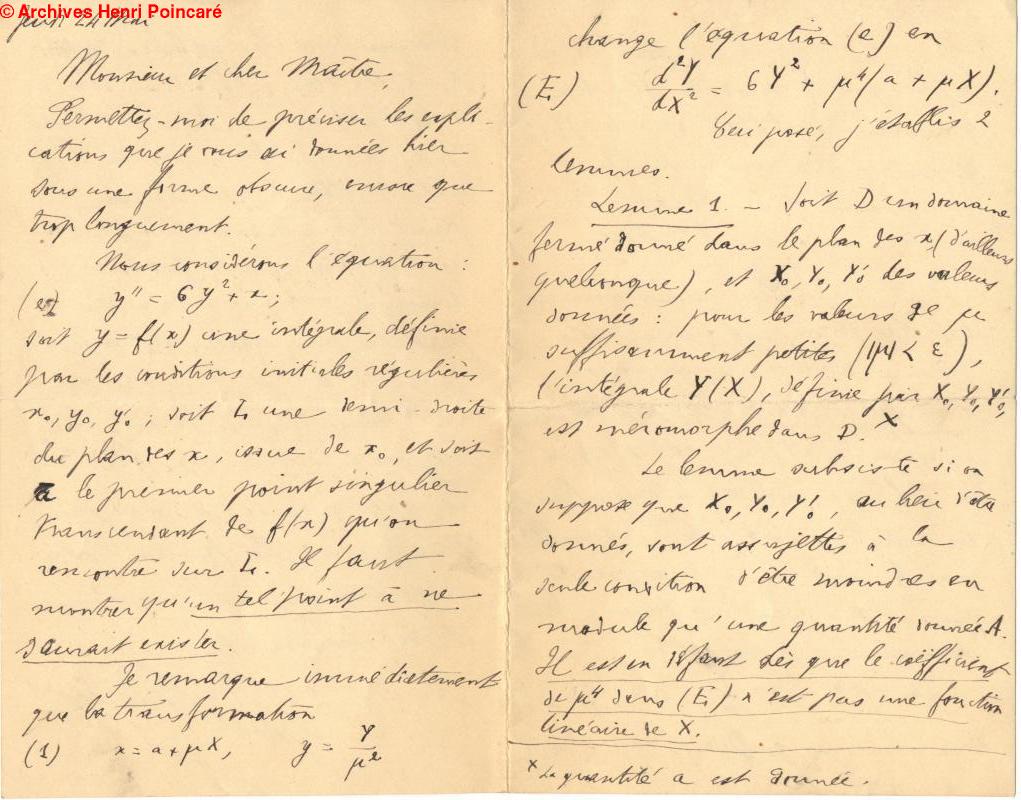 © Archives Henri Poincaré
jeudi 24 Mai
Monsieur et cher Maître,
Permettez-moi de préciser les expli-
cations que je vous ai données hier
sous une forme obscure, encore que
trop longuement.
Nous considérons l'équation :
(e) y'' = 6y² + x ;
soit y = f(x) une intégrale, définie
par les conditions initiales régulières
x₀, y₀, y'₀ ; soit L une demi-droite
du plan des x, issue de x₀, et soit
a le premier point singulier
transcendant de f(x) qu'on
rencontre sur L. Il faut
montrer qu'un tel point a ne
saurait exister.
Je remarque immédiatement
que la transformation
(1) x = a + μX, y = Y/μ²
change l'équation (e) en
(E₁) d²Y/dX² = 6Y² + μ⁴(a + μX).
Ceci posé, j'établis 2
lemmes.
Lemme 1. – Soit D un domaine
fermé donné dans le plan des x (d'ailleurs
quelconque), et X₀, Y₀, Y'₀ des valeurs
données : pour les valeurs de μ
suffisamment petites (|μ| < ε),
l'intégrale Y(X), définie par X₀, Y₀, Y'₀,
est méromorphe dans D. ×
Le lemme subsiste si on
suppose que X₀, Y₀, Y'₀, au lieu d'être
donnés, sont assujettis à la
seule condition d'être moindres en
module qu'une quantité donnée A.
Il est en défaut dès que le coefficient
de μ⁴ dans (E₁) n'est pas une fonction
linéaire de X.
× La quantité a est donnée.